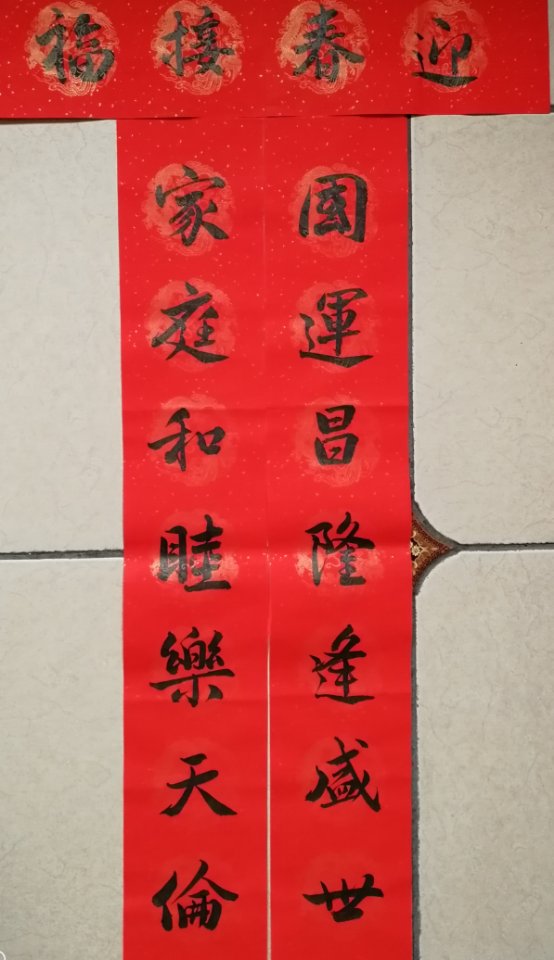 迎春接福
國運昌隆逢盛世
家庭和睦樂天倫